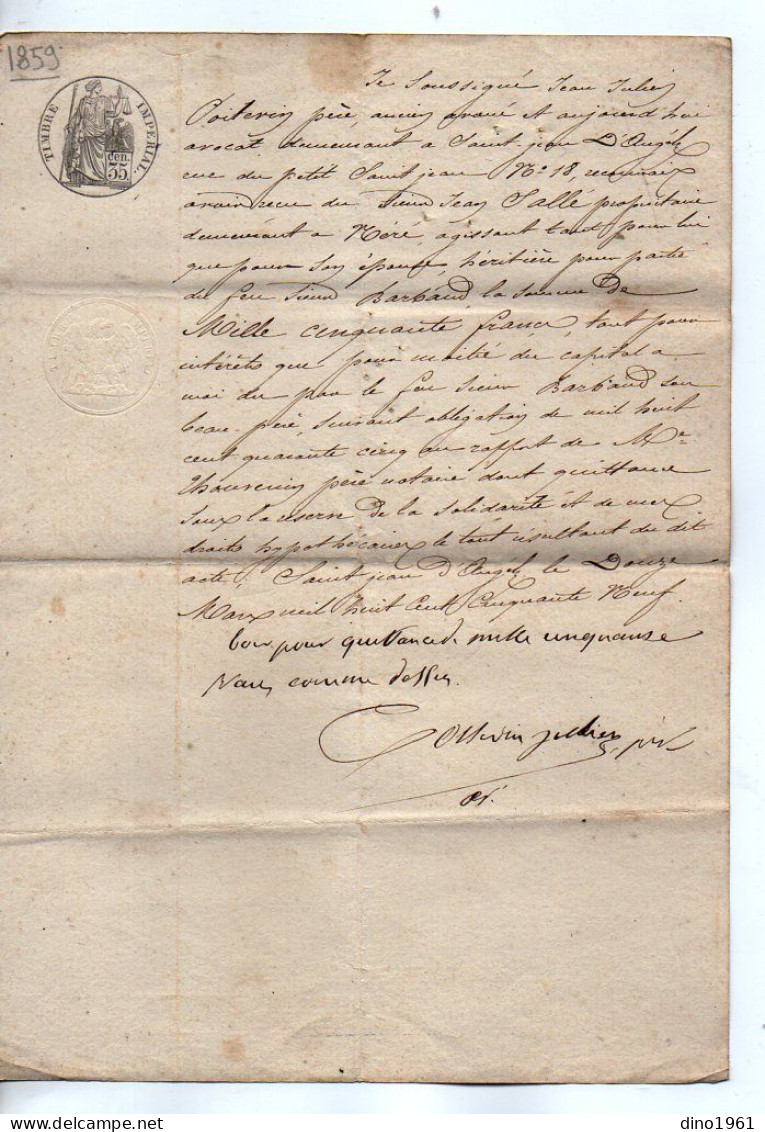 1859
TIMBRE IMPERIAL.
Cen.
35
Je Soussigné Jean Julien
Poitevin père, ancien avoué et aujourd'hui
avocat demeurant a Saint jean D'Angély
rue du petit Saint jean No. 18, reconnaix
avoir recu du Sieur Jean Sallé propriétaire
demeurant a Néré, agissant tant pour lui
que pour son épouse, héritière pour partie
de feu Sieur Barbaud, la somme de
Mille cinquante francs, tant pour
intérêts que pour moitié du capital a
moi du par le feu Sieur Barbaud son
beau-père, suivant obligation de mil huit
cent quarante cinq au rapport de Me
Thouvenin père notaire dont quittance
sous la réserve de la solidarité et de mes
droits hypothécaires le tout résultant du dit
acte, Saint jean D'Angély le Douze
Mars mil huit Cent Cinquante Neuf.
bon pour quittance de mille cinquante
francs comme dessus.
Poitevin julien père
av.
dino1961